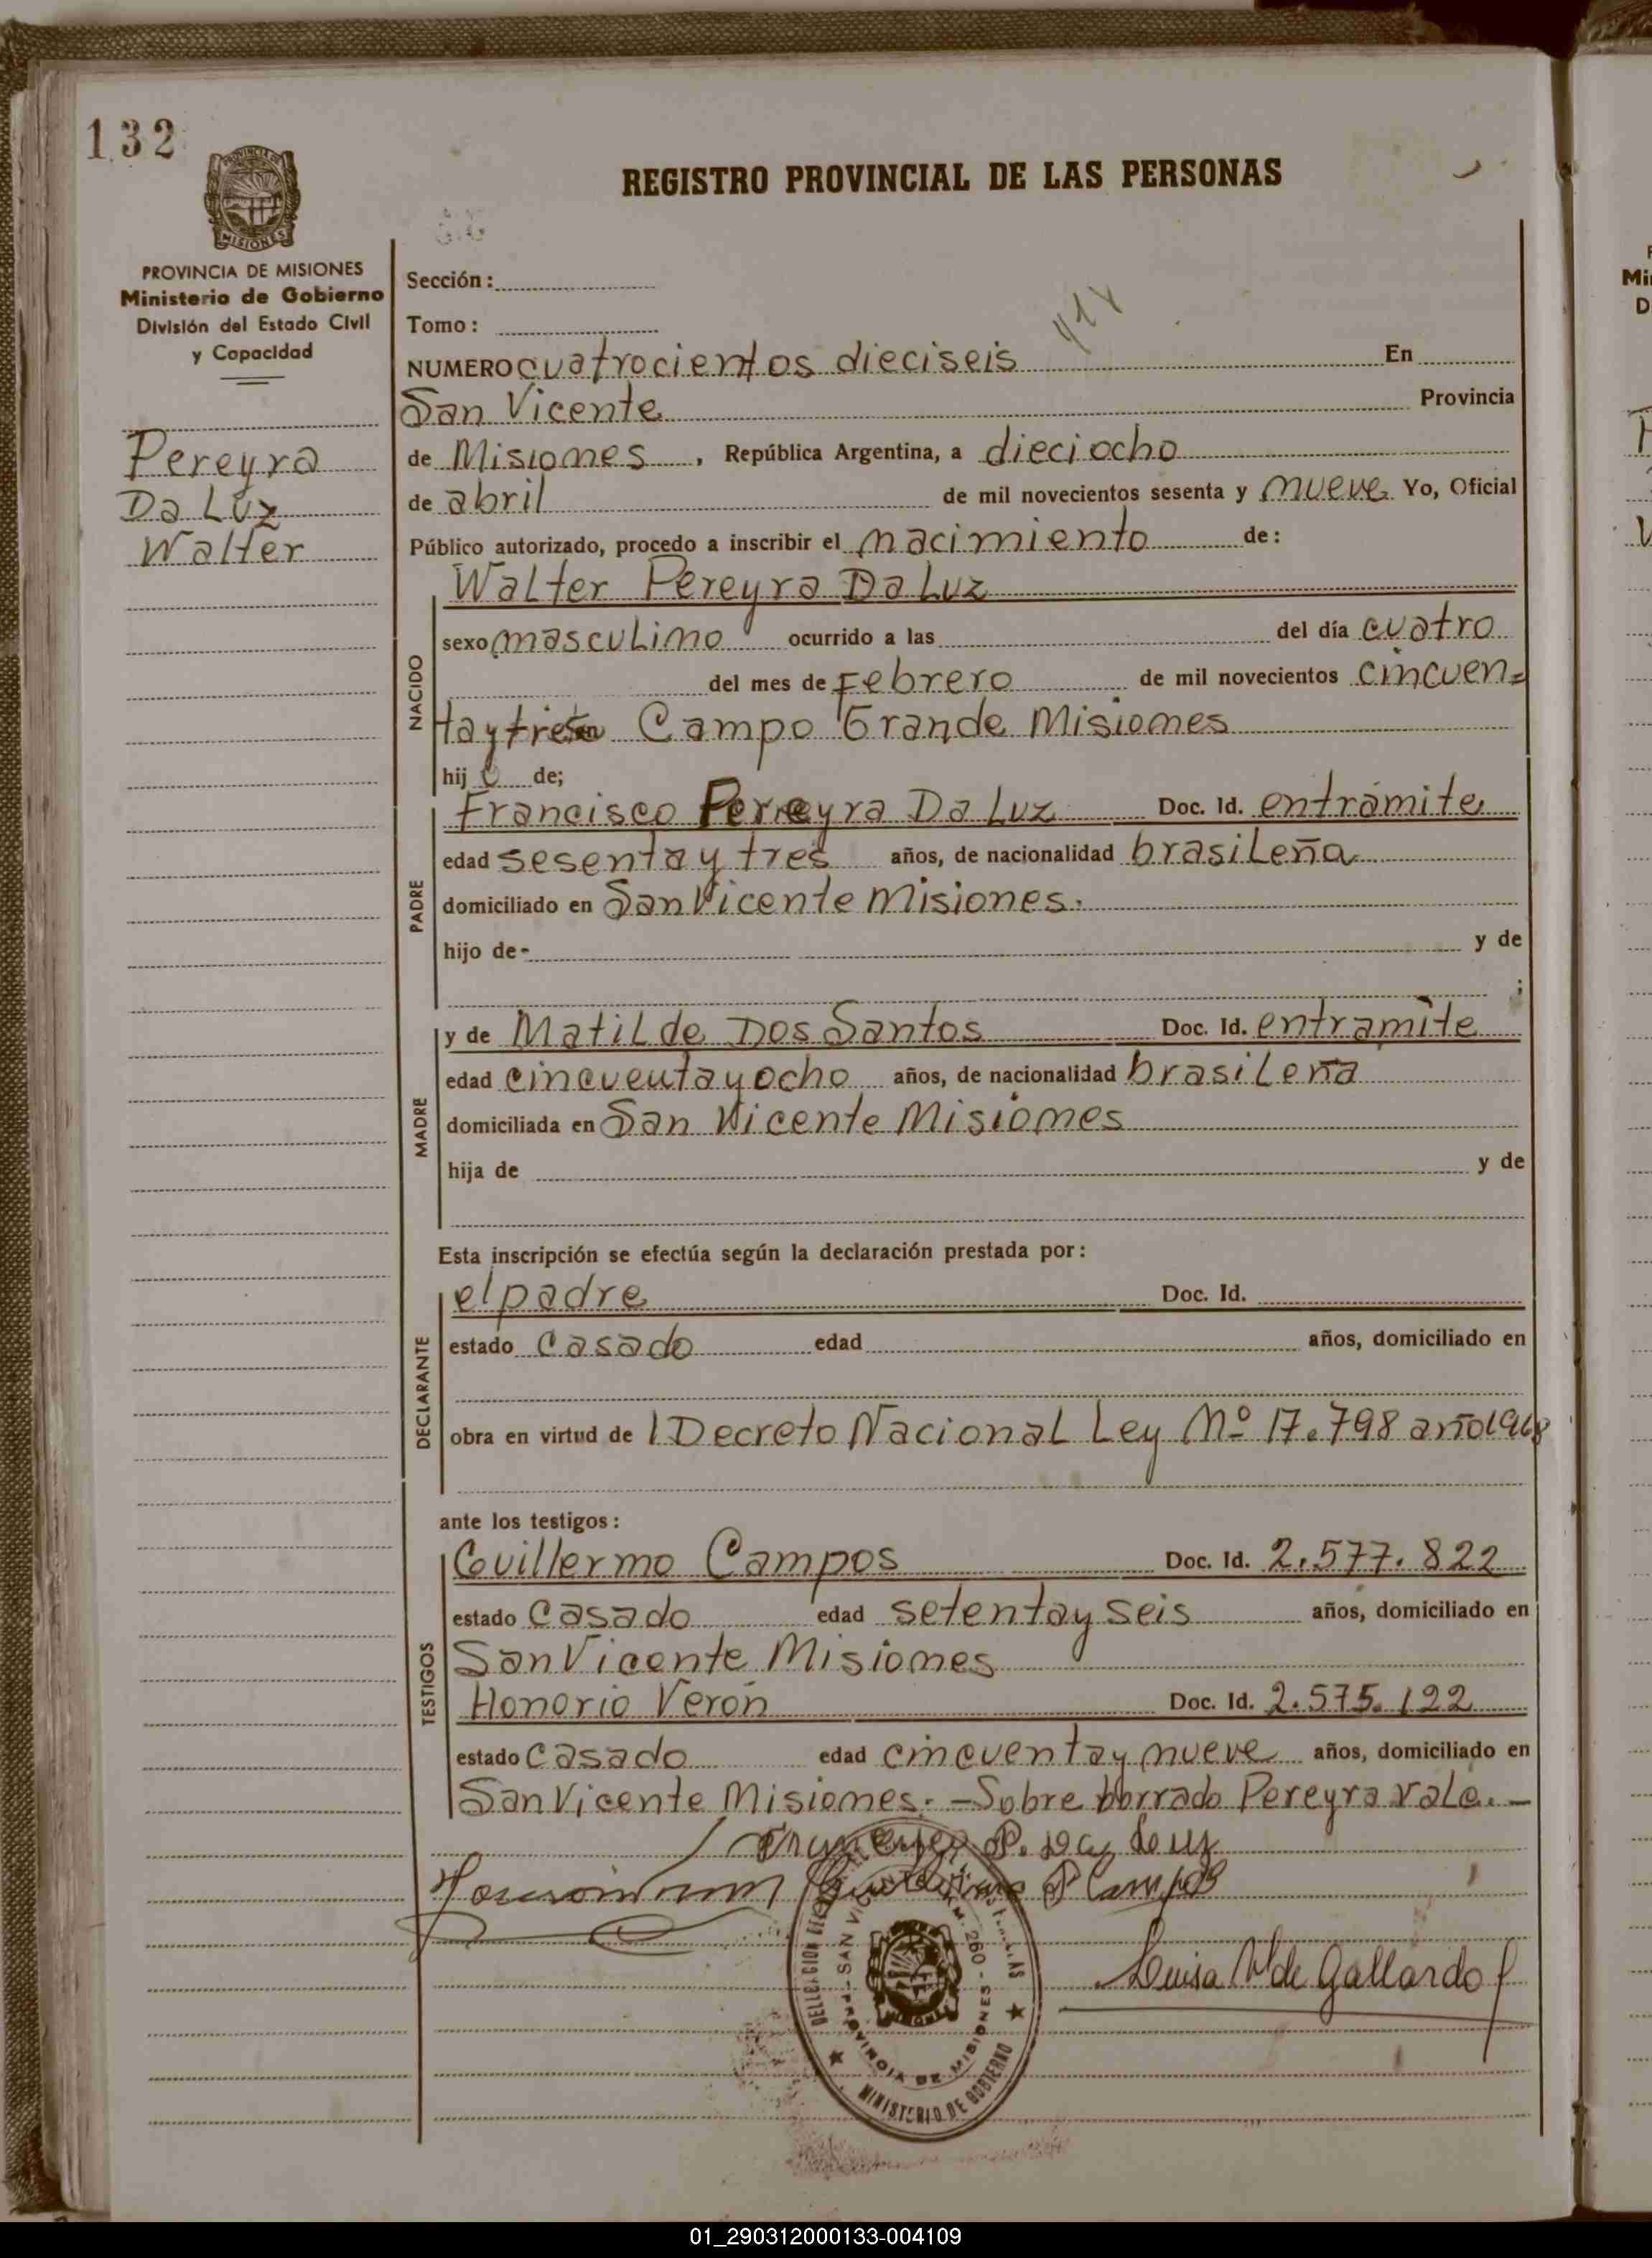 132
REGISTRO PROVINCIAL DE LAS PERSONAS
MISIONES
PROVINCIA DE MISIONES
Ministerio de Gobierno
División del Estado Civil
y Capacidad
Pereyra
Da Luz
Walter
Sección:
Tomo:
NUMERO cuatrocientos dieciseis En
San Vicente Provincia
de Misiones, República Argentina, a dieciocho
de abril de mil novecientos sesenta y nueve Yo, Oficial
Público autorizado, procedo a inscribir el nacimiento de:
Walter Pereyra Da Luz
NACIDO
sexo masculino ocurrido a las del día cuatro
del mes de Febrero de mil novecientos cincuen=
ta y tres en Campo Grande Misiones
hijo de;
PADRE
Francisco Pereyra Da Luz Doc. Id. entrámite
edad sesenta y tres años, de nacionalidad brasileña
domiciliado en San Vicente Misiones.
hijo de- y de
;
MADRE
y de Matilde Dos Santos Doc. Id. entramite
edad cincuenta y ocho años, de nacionalidad brasileña
domiciliada en San Vicente Misiones
hija de y de
Esta inscripción se efectúa según la declaración prestada por:
DECLARANTE
el padre Doc. Id.
estado casado edad años, domiciliado en
obra en virtud de l Decreto Nacional Ley Nº 17.798 año 1968
ante los testigos:
TESTIGOS
Guillermo Campos Doc. Id. 2.577.822
estado casado edad setenta y seis años, domiciliado en
San Vicente Misiones
Honorio Verón Doc. Id. 2.575.122
estado casado edad cincuenta y nueve años, domiciliado en
San Vicente Misiones.-Sobre borrado Pereyra vale.-
P. da Luz
P Campos
Luisa de Gallardo
SAN VICENTE
PROVINCIA DE MISIONES
MINISTERIO DE GOBIERNO
Mi
D
01_290312000133-004109